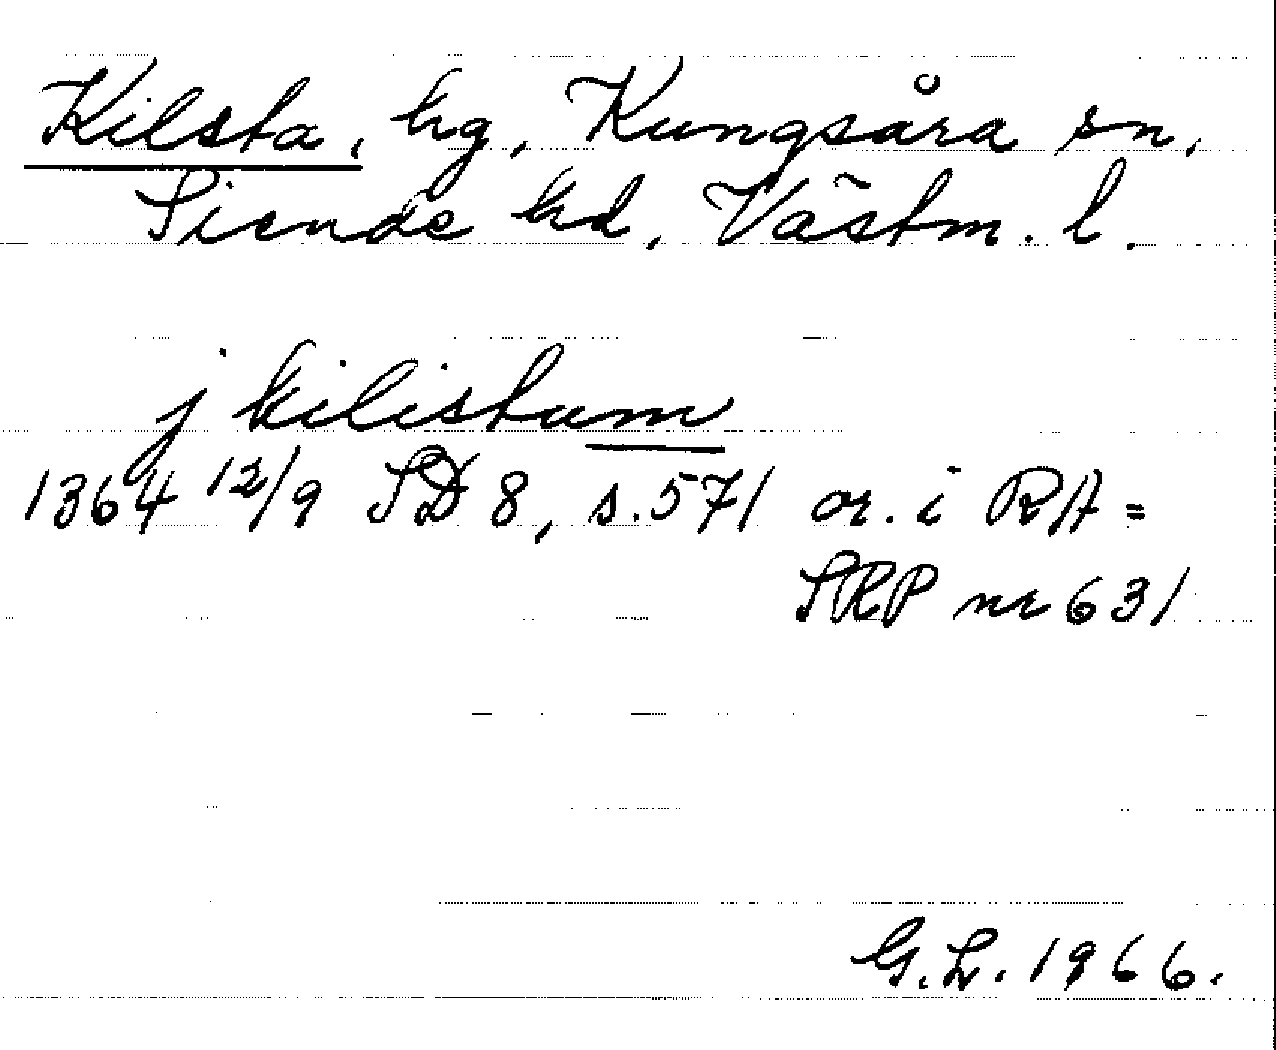 Kilsta, hg, Kungsåra sn,
Siende hd, Västm. l.
j kilistum
1364 12/9 SD 8, s. 571 or. i RA =
SRP nr 631
G.L. 1966.